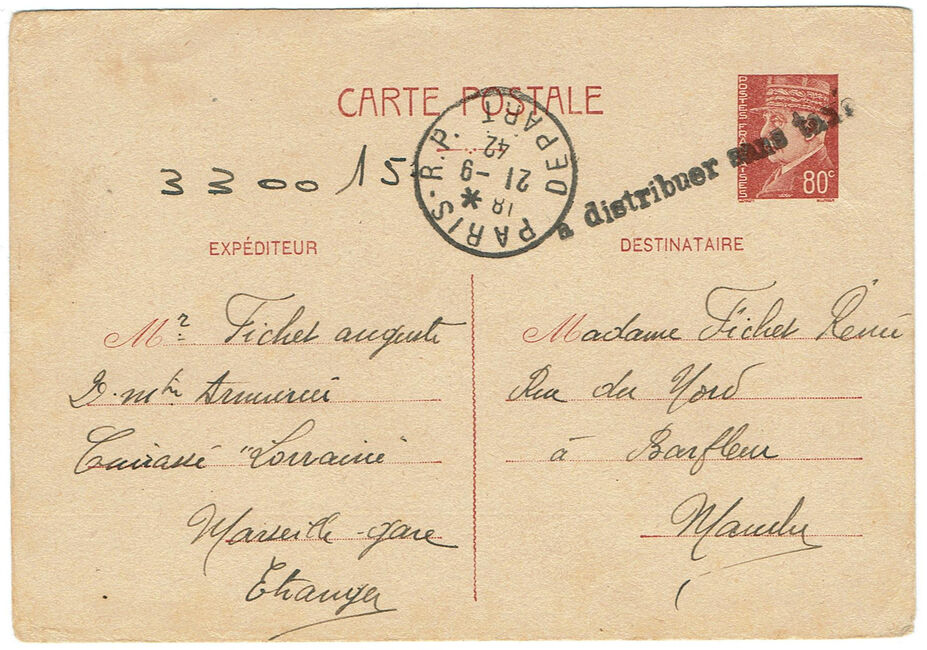 CARTE POSTALE
POSTES FRANÇAISES
80c
a distribuer sans taxe
PARIS-R.P.
DEPART
18
21-9
42
3300 15
EXPÉDITEUR
Mr Fichet auguste
2. mtre Armurié
Cuirassé "Lorraine
Marseille-gare
Etranger
DESTINATAIRE
Madame Fichet René
Rue du Nord
à Barfleur
Manche